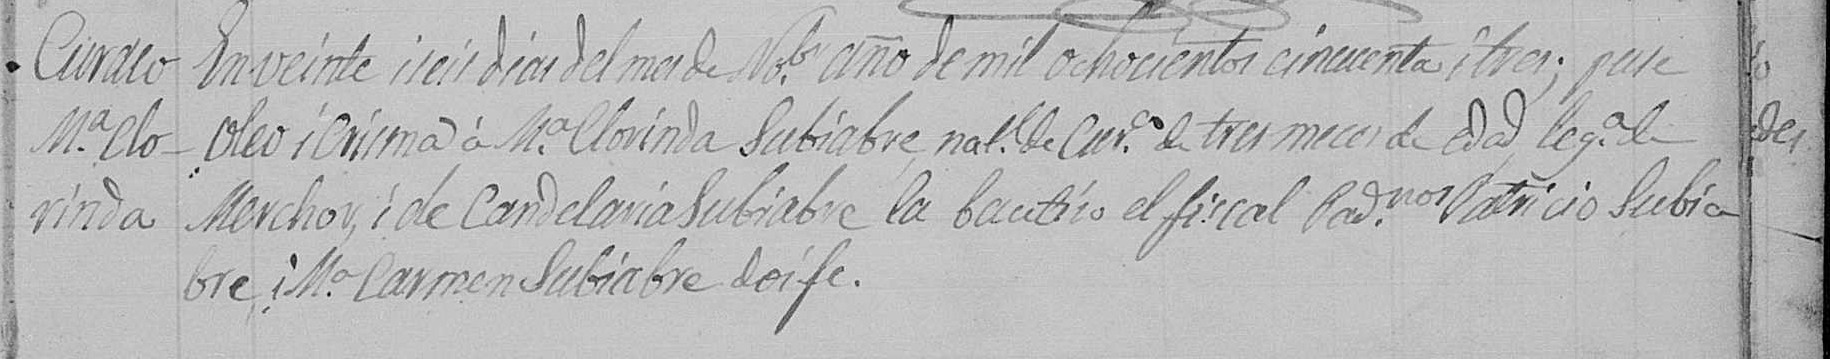 Curaco En veinte i seis dias del mes de Nobe. año de mil ochocientos cincuenta i tres; puse
Ma. Clo- Oleo i Crisma à Ma. Clorinda Subiabre, nal. de Cura. de tres meces de edad lega. de
rinda Merchor, i de Candelaria Subiabre la bautiso el fiscal Padnos. Patricio Subia
bre, i Ma. Carmen Subiabre doi fe.
des